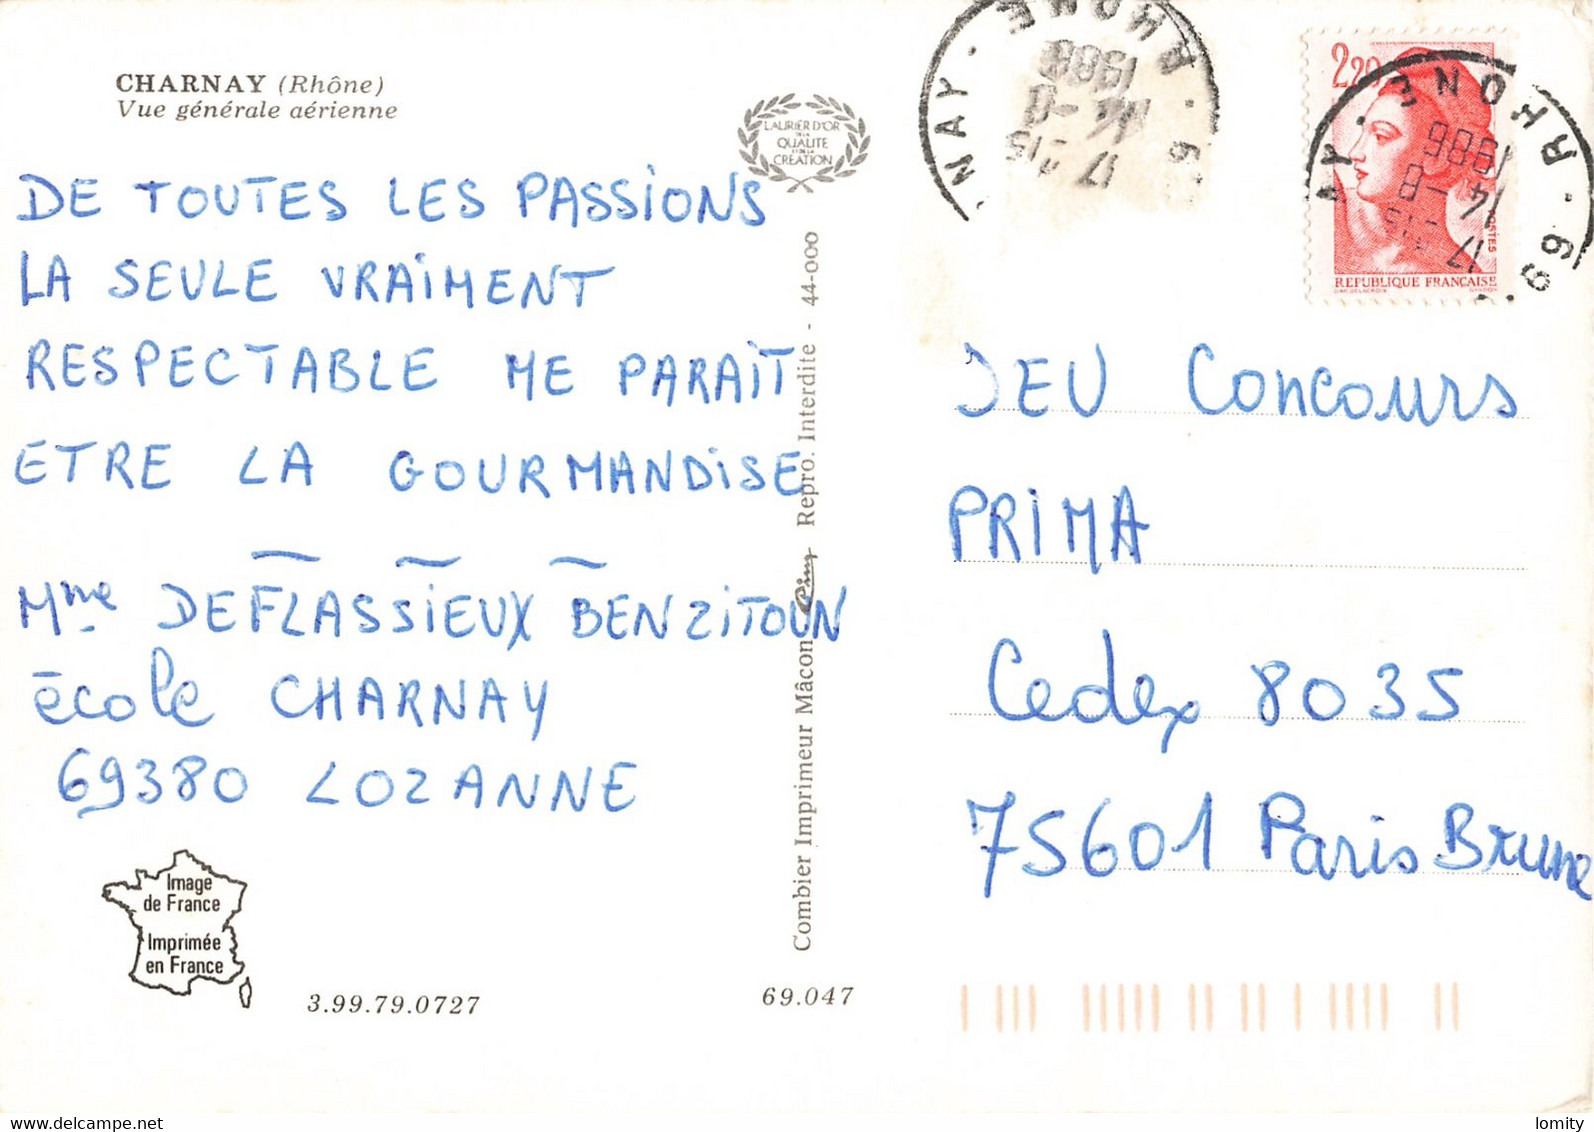 CHARNAY (Rhône)
Vue générale aérienne
LAURIER D'OR
DE LA
QUALITE
ET DE LA
CREATION
DE TOUTES LES PASSIONS
LA SEULE VRAiMENT
RESPECTABLE ME PARAÎT
ETRE LA GOURMANDiSE
Mme DEFLASSiEUX BENZiTOUN
école CHARNAY
69380 LOZANNE
Image
de France
Imprimée
en France
3.99.79.0727
69.047
Combier Imprimeur Mâcon Cim Repro. Interdite - 44-000
NAY · RHONE · 6
17
14 -8
1986
2,20
POSTES
REPUBLIQUE FRANÇAISE
AY · RHONE · 69
17
14 -8
1986
JEU Concours
PRiMA
Cedex 8035
75601 Paris Brune
lomity